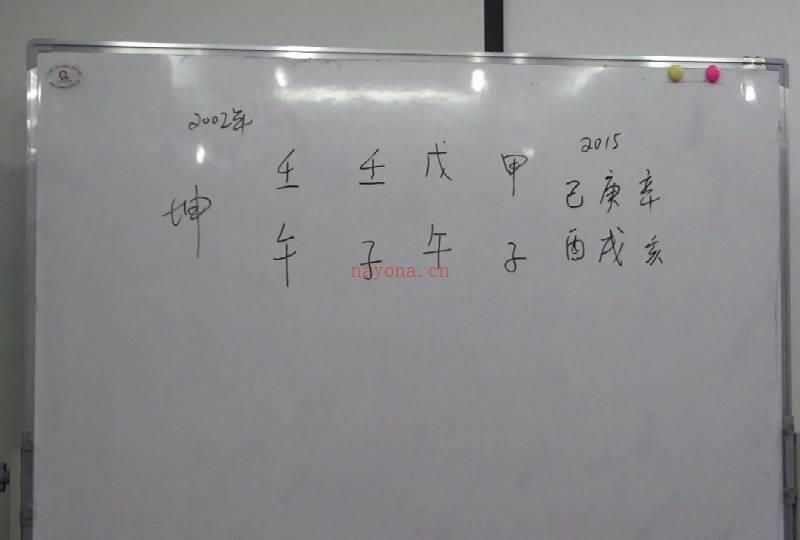 2002年
2015
壬 壬 戊 甲
己 庚 辛
坤
午 子 午 子
酉 戌 亥
nayona.cn